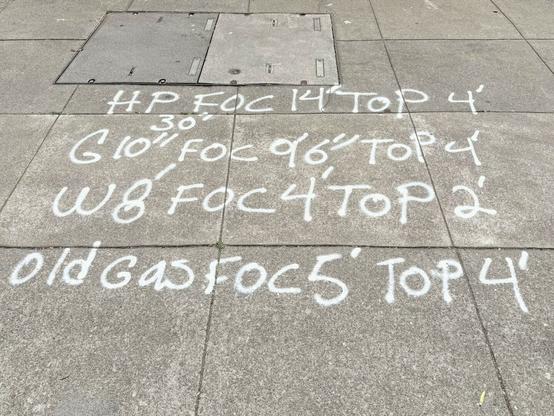 HP FOC 14' TOP 4'
30"
G 10" FOC 9'6" TOP 4'
W 8' FOC 4' TOP 2'
Old Gas FOC 5' TOP 4'